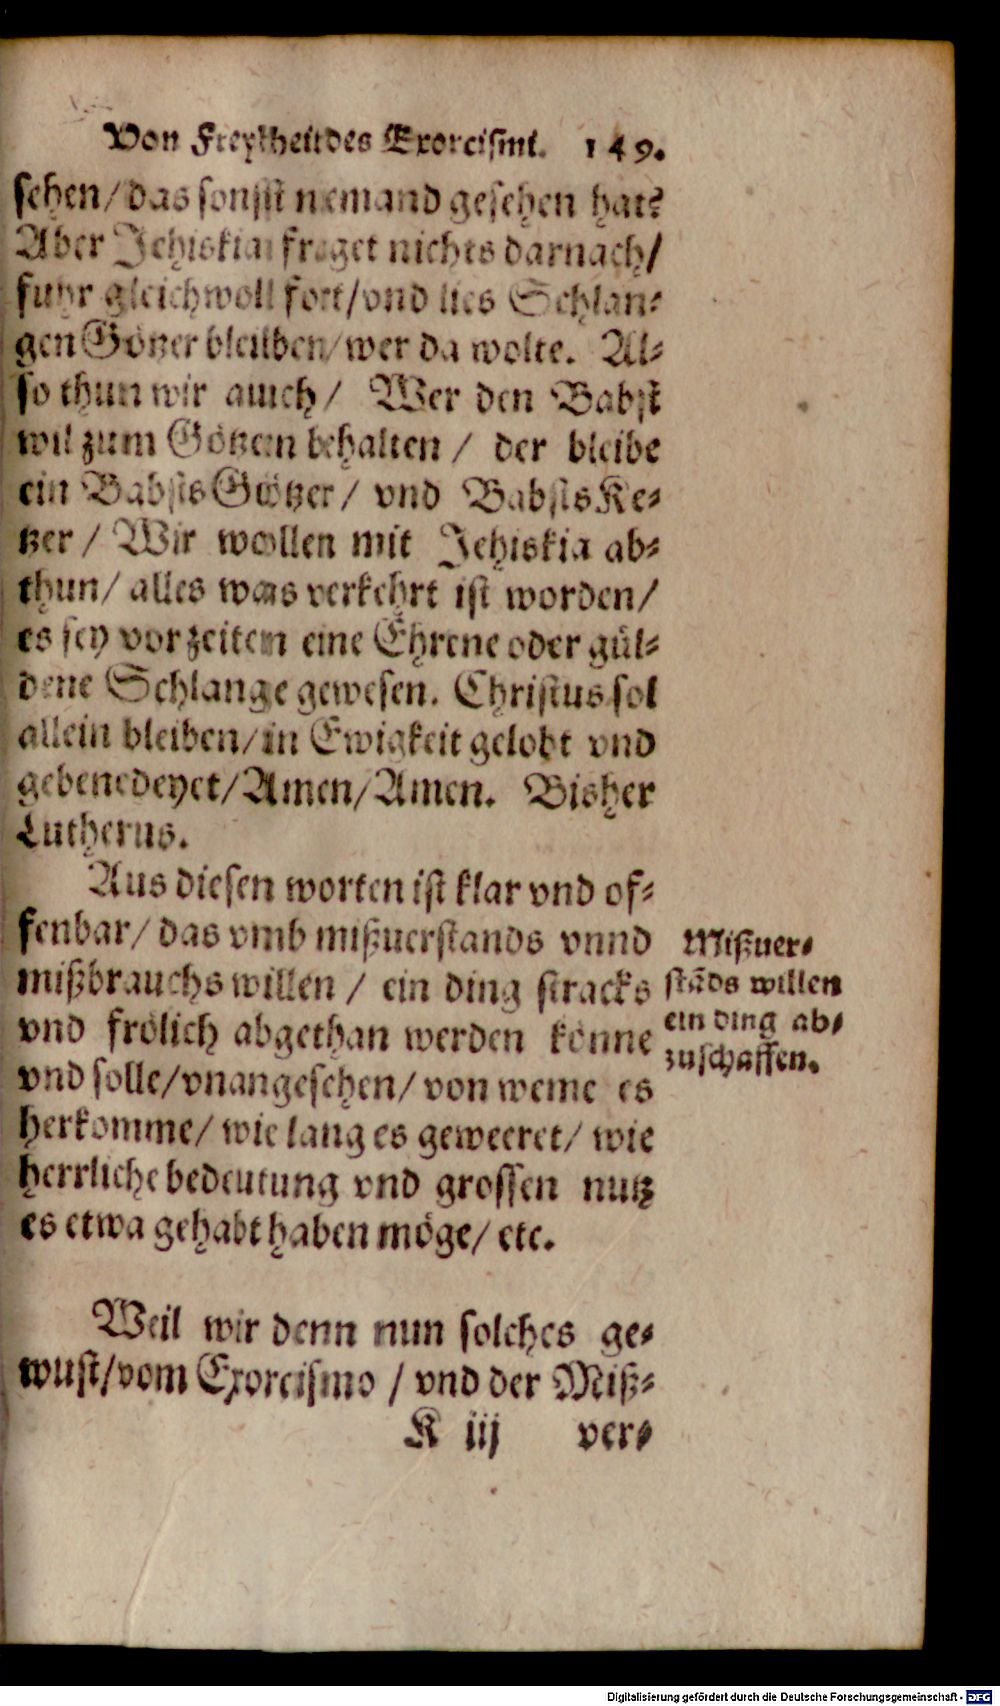 Von Freyheit des Exorcismi. 149.
sehen/ das sonst niemand gesehen hat?
Aber Jehiskia fraget nichts darnach/
fuhr gleichwoll fort/ vnd lies Schlan-
gen Götzer bleiben/ wer da wolte. Al-
so thun wir auch/ Wer den Babst
wil zum Götzen behalten / der bleibe
ein Babsts Götzer/ vnd Babsts Ke-
tzer / Wir wollen mit Jehiskia ab-
thun/ alles was verkehrt ist worden/
es sey vor zeiten eine Ehrene oder gül-
dene Schlange gewesen. Christus sol
allein bleiben/ in Ewigkeit gelobt vnd
gebenedeyet/ Amen/ Amen. Bisher
Lutherus.
Aus diesen worten ist klar vnd of-
fenbar/ das vmb mißuerstands vnnd
mißbrauchs willen / ein ding stracks
vnd frölich abgethan werden könne
vnd solle/ vnangesehen/ von weme es
herkomme/ wie lang es geweeret/ wie
herrliche bedeutung vnd grossen nutz
es etwa gehabt haben möge/ etc.
Mißuer-
stãds willen
ein ding ab-
zuschaffen.
Weil wir denn nun solches ge-
wust/ vom Exorcismo / vnd der Miß-
K iij ver-
Digitalisierung gefördert durch die Deutsche Forschungsgemeinschaft - DFG